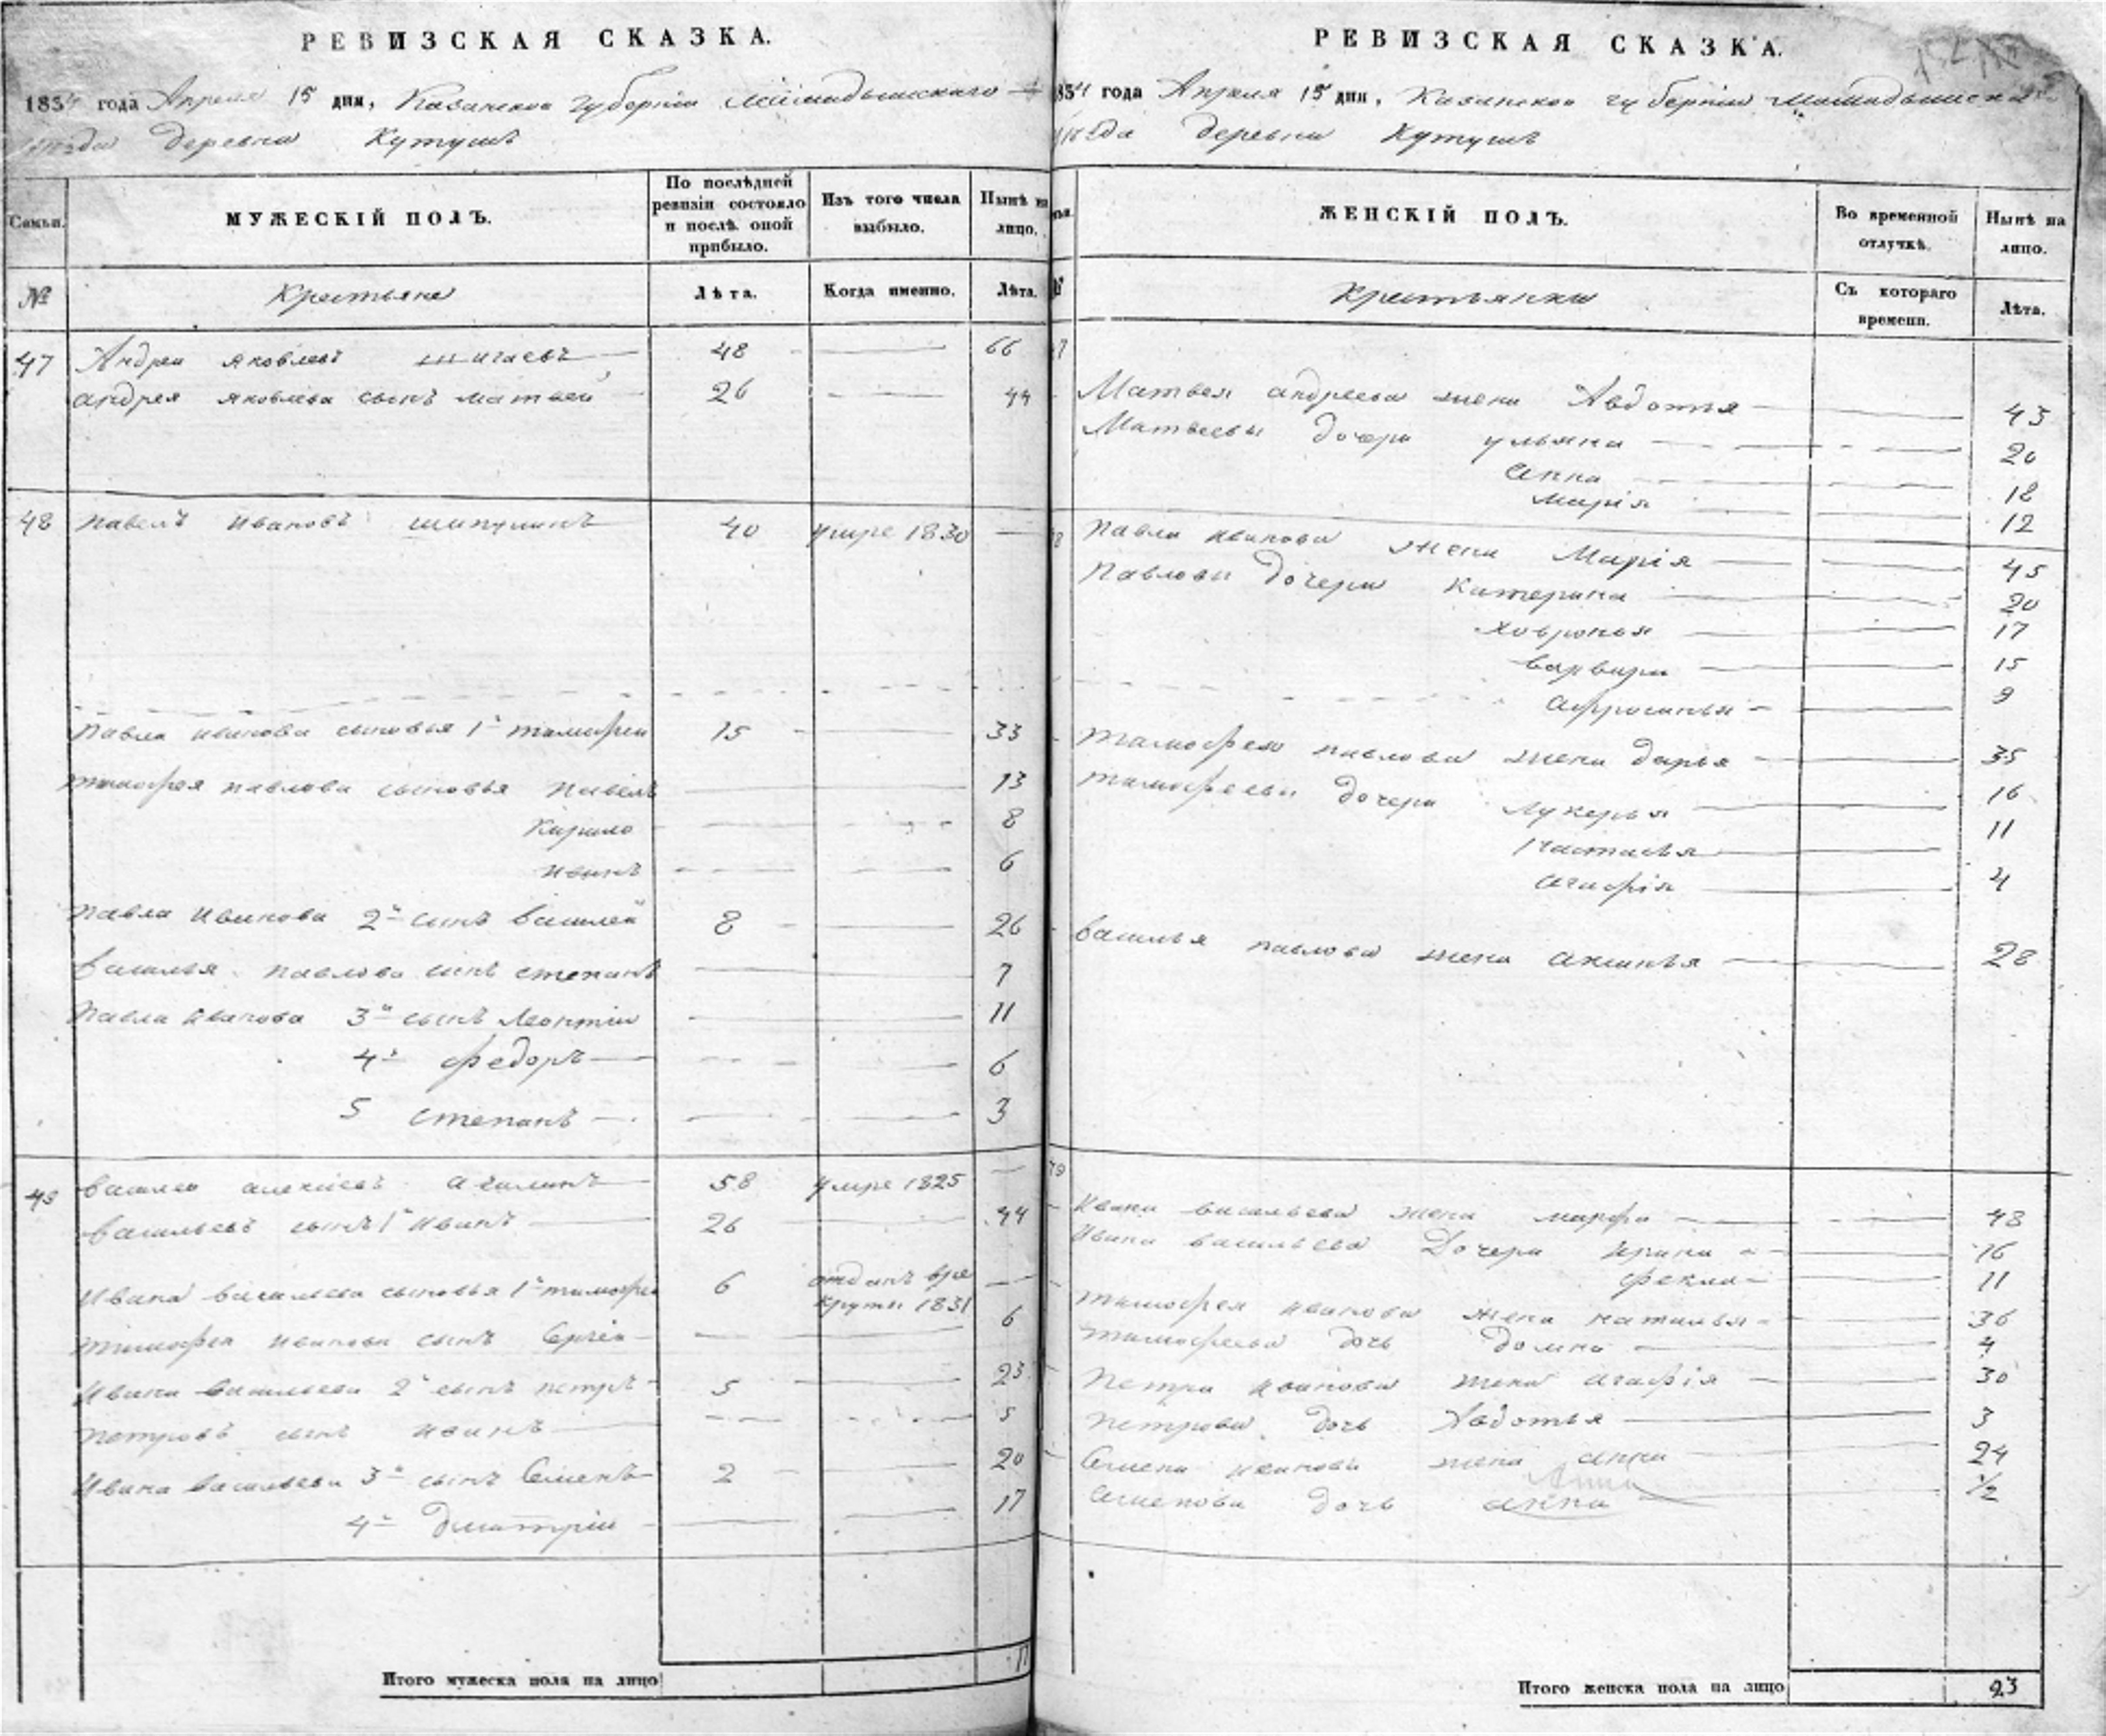 РЕВИЗСКАЯ СКАЗКА.
1834 года Апреля 15 дня, Казанской губернии Мамадышскаго
уезда деревни Кутушъ
Семьи.
МУЖЕСКІЙ ПОЛЪ.
По послѣдней ревизіи состояло и послѣ оной прибыло.
Изъ того числа выбыло.
Нынѣ на лицо.
№
Крестьяне
Лѣта.
Когда именно.
Лѣта.
47 Андреи яковлевъ 48 — 66
андрея яковлева сынъ матвей 26 — 44
48 павелъ ивановъ шипулинъ 40 умре 1830 —
павла иванова сыновья 1й тимофеи 15 — 33
тимофея павлова сыновья павелъ — 13
Кирило — 8
иванъ — 6
павла иванова 2й сынъ василей 8 — 26
василья павлова сынъ степанъ — 7
павла иванова 3й сынъ леонтіи — 11
4й федоръ — 6
5 степанъ — 3
49 василеи алексіевъ 58 умре 1825 —
васильевъ сынъ 1й иванъ 26 — 44
ивана васильева сыновья 1й тимофеи 6 отданъ в ре круты 1831 —
тимофея иванова сынъ Сергіи — 6
ивана васильева 2й сынъ петръ 5 — 23
петровъ сынъ иванъ — 5
ивана васильева 3й сынъ Семенъ 2 — 20
4й дмитріи — 17
Итого мужеска пола на лицо
РЕВИЗСКАЯ СКАЗКА.
1834 года Апреля 15 дня, Казанской губерніи Мамадышска
уезда деревни Кутушъ
ЖЕНСКІЙ ПОЛЪ.
Во временной отлучкѣ.
Нынѣ на лицо.
Крестьянки
Съ котораго времени.
Лѣта.
Матвея андреева жена Авдотья — 43
Матвеевы дочери ульяна — 20
анна — 18
марія — 12
павла иванова жена Марія — 45
павловы дочери Катерина — 20
ховронья — 17
варвара — 15
афросинья — 9
тимофея павлова жена дарья — 35
тимофеевы дочери лукерья — 16
настасья — 11
агафія — 4
василья павлова жена аксинья — 28
ивана васильева жена марфа — 48
ивана васильева дочери ирина — 16
фекла — 11
тимофея иванова жена наталья — 36
тимофеева дочь домна — 4
петра иванова жена агафія — 30
петрова дочь Авдотья — 3
Семена иванова жена анна — 24
Анна
Семенова дочь анна — 1/2
Итого женска пола на лицо 23